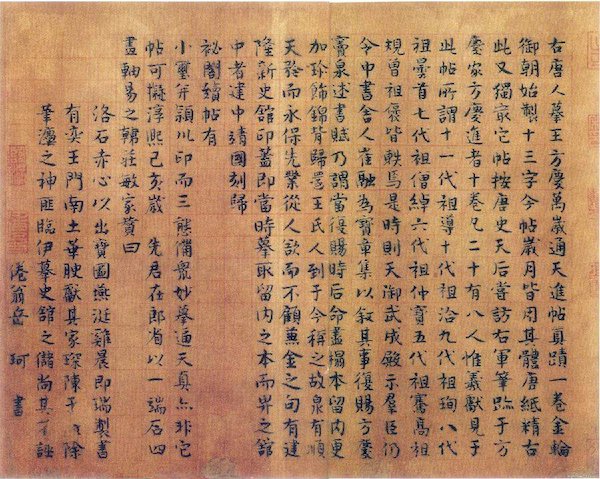 右唐人摹王方慶萬歲通天進帖真蹟一卷金輪
御朝始製十三字今帖歲月皆周其體唐紙精古
此又獨冣它帖按唐史天后嘗訪右軍筆蹟于方
慶家方慶進者十卷凡二十有八人惟羲獻見于
此帖所謂十一代祖導十代祖洽九代祖珣八代
祖曇首七代祖僧綽六代祖仲寶五代祖騫高祖
規曾祖褒皆軼焉是時則天御武成殿示羣臣仍
令中書舍人崔融為寶章集以叙其事復賜方慶
竇泉述書賦乃謂當復賜時后命盡搨本留內更
加珍飾錦背歸還王氏人到于今稱之故泉有順
天矜而永保先業從人欲而不顧兼金之句有建
隆新史館印蓋即當時摹取留內之本而畀之館
中者建中靖國刻歸
祕閣續帖有
小璽斧潁川印而三態備衆妙摹逼天真亦非它
帖可擬淳熙己亥歲 先君在郎省以一端石四
盡軸易之韓莊敏家贊曰
洛石赤心以出寶圖燕涎雞晨即瑞製書
有奕王門南土華腴獻其家琛陳于除
筆灋之神匪臨伊摹史館之儲尚其可誣
倦翁岳珂書